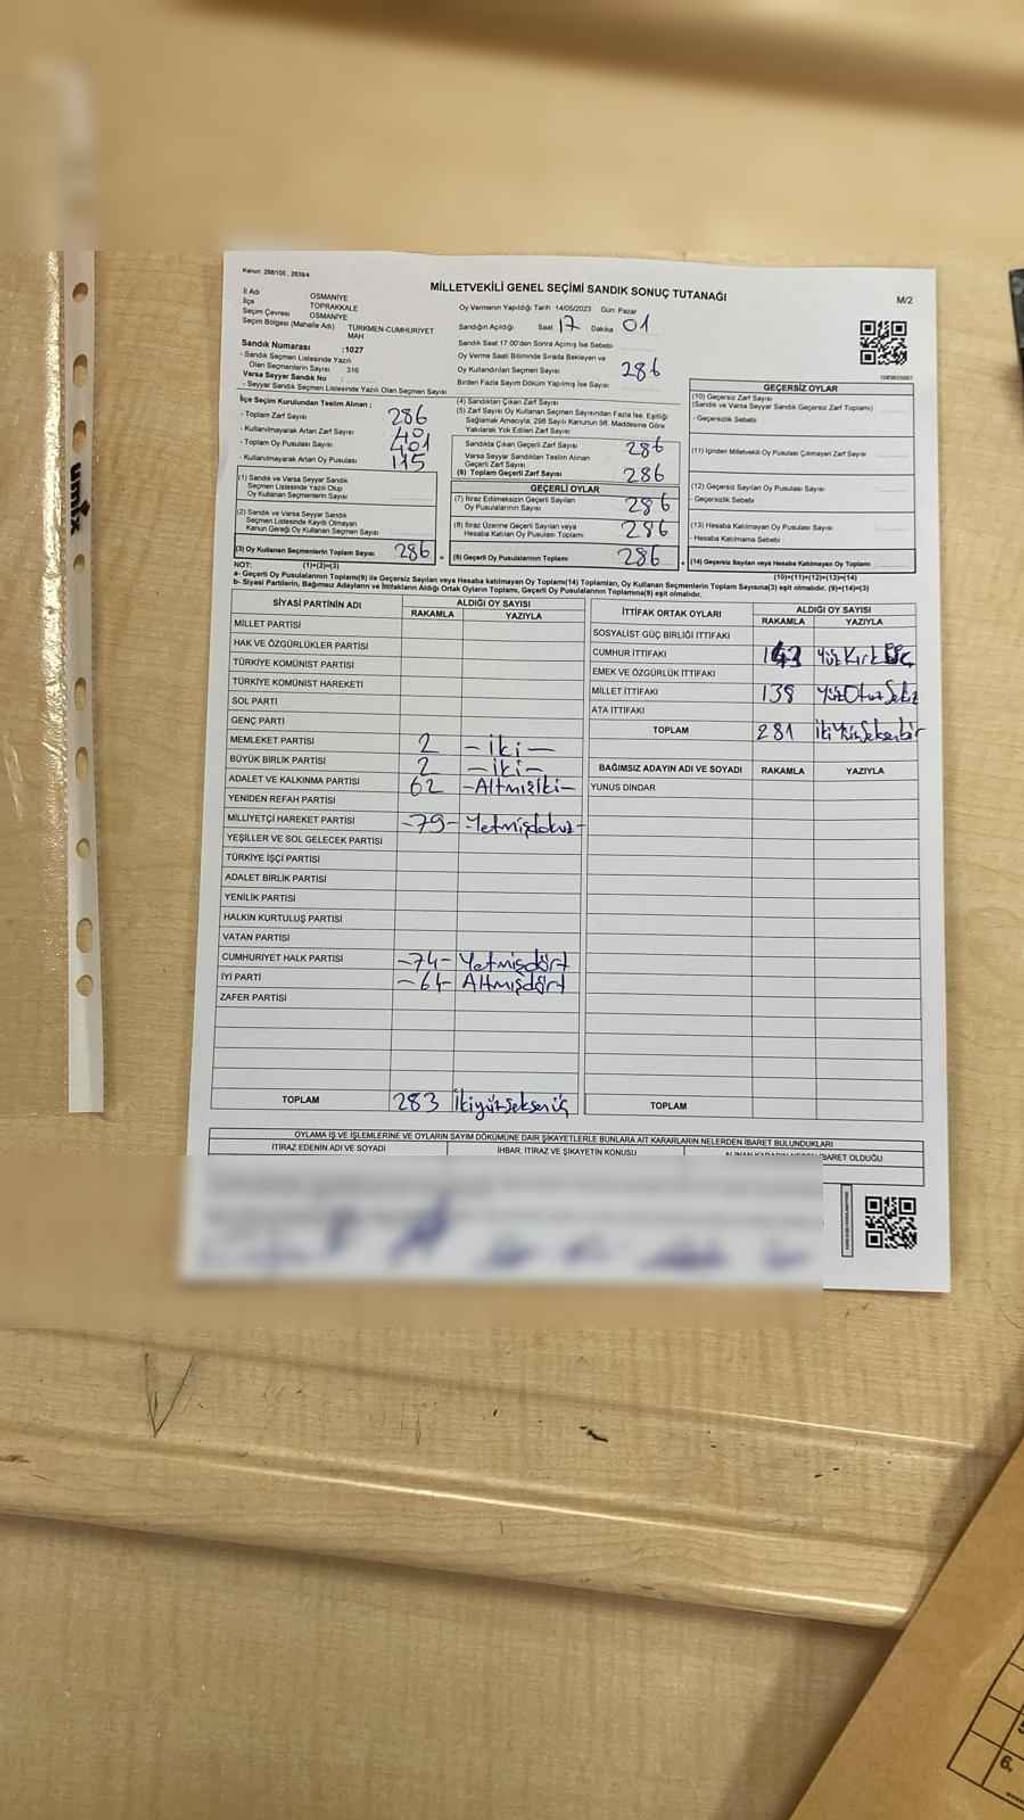 Kanun: 298/105, 2839/4
MİLLETVEKİLİ GENEL SEÇİMİ SANDIK SONUÇ TUTANAĞI
M/2
İl Adı OSMANİYE
İlçe TOPRAKKALE
Seçim Çevresi OSMANİYE
Seçim Bölgesi (Mahalle Adı) TÜRKMEN-CUMHURİYET MAH
Sandık Numarası :1027
- Sandık Seçmen Listesinde Yazılı
Olan Seçmenlerin Sayısı 316
Varsa Seyyar Sandık No
- Seyyar Sandık Seçmen Listesinde Yazılı Olan Seçmen Sayısı
İlçe Seçim Kurulundan Teslim Alınan ;
- Toplam Zarf Sayısı 286
- Kullanılmayarak Artan Zarf Sayısı 401
- Toplam Oy Pusulası Sayısı 401
- Kullanılmayarak Artan Oy Pusulası 115
(1) Sandık ve Varsa Seyyar Sandık
Seçmen Listesinde Yazılı Olup
Oy Kullanan Seçmenlerin Sayısı
(2) Sandık ve Varsa Seyyar Sandık
Seçmen Listesinde Kayıtlı Olmayan
Kanun Gereği Oy Kullanan Seçmen Sayısı
(3) Oy Kullanan Seçmenlerin Toplam Sayısı 286
(1)+(2)=(3)
Oy Vermenin Yapıldığı Tarih 14/05/2023 Gün: Pazar
Sandığın Açıldığı Saat 17 Dakika 01
Sandık Saat 17:00'den Sonra Açılmış İse Sebebi
Oy Verme Saati Bitiminde Sırada Bekleyen ve
Oy Kullandırılan Seçmen Sayısı 286
Birden Fazla Sayım Döküm Yapılmış İse Sayısı
(4) Sandıktan Çıkan Zarf Sayısı
(5) Zarf Sayısı Oy Kullanan Seçmen Sayısından Fazla ise, Eşitliği
Sağlamak Amacıyla, 298 Sayılı Kanunun 98. Maddesine Göre
Yakılarak Yok Edilen Zarf Sayısı
Sandıkta Çıkan Geçerli Zarf Sayısı 286
Varsa Seyyar Sandıktan Teslim Alınan
Geçerli Zarf Sayısı
(6) Toplam Geçerli Zarf Sayısı 286
GEÇERLİ OYLAR
(7) İtiraz Edilmeksizin Geçerli Sayılan
Oy Pusulalarının Sayısı 286
(8) İtiraz Üzerine Geçerli Sayılan veya
Hesaba Katılan Oy Pusulası Toplamı 286
(9) Geçerli Oy Pusulalarının Toplamı 286
GEÇERSİZ OYLAR
(10) Geçersiz Zarf Sayısı
(Sandık ve Varsa Seyyar Sandık Geçersiz Zarf Toplamı)
- Geçersizlik Sebebi
(11) İçinden Milletvekili Oy Pusulası Çıkmayan Zarf Sayısı
(12) Geçersiz Sayılan Oy Pusulası Sayısı
- Geçersizlik Sebebi
(13) Hesaba Katılmayan Oy Pusulası Sayısı
- Hesaba Katılmama Sebebi
(14) Geçersiz Sayılan veya Hesaba Katılmayan Oy Toplamı
(10)+(11)+(12)+(13)=(14)
NOT:
a- Geçerli Oy Pusulalarının Toplamı(9) ile Geçersiz Sayılan veya Hesaba katılmayan Oy Toplamı(14) Toplamları, Oy Kullanan Seçmenlerin Toplam Sayısına(3) eşit olmalıdır. (9)+(14)=(3)
b- Siyasi Partilerin, Bağımsız Adayların ve İttifakların Aldığı Ortak Oyların Toplamı, Geçerli Oy Pusulalarının Toplamına(9) eşit olmalıdır.
SİYASİ PARTİNİN ADI ALDIĞI OY SAYISI
RAKAMLA YAZIYLA
MİLLET PARTİSİ
HAK VE ÖZGÜRLÜKLER PARTİSİ
TÜRKİYE KOMÜNİST PARTİSİ
TÜRKİYE KOMÜNİST HAREKETİ
SOL PARTİ
GENÇ PARTİ
MEMLEKET PARTİSİ 2 -iki-
BÜYÜK BİRLİK PARTİSİ 2 -iki-
ADALET VE KALKINMA PARTİSİ 62 -Altmışiki-
YENİDEN REFAH PARTİSİ
MİLLİYETÇİ HAREKET PARTİSİ -79- -Yetmişdokuz-
YEŞİLLER VE SOL GELECEK PARTİSİ
TÜRKİYE İŞÇİ PARTİSİ
ADALET BİRLİK PARTİSİ
YENİLİK PARTİSİ
HALKIN KURTULUŞ PARTİSİ
VATAN PARTİSİ
CUMHURİYET HALK PARTİSİ -74- Yetmişdört
İYİ PARTİ -64- Altmışdört
ZAFER PARTİSİ
TOPLAM 283 ikiyüzseksenüç
İTTİFAK ORTAK OYLARI ALDIĞI OY SAYISI
RAKAMLA YAZIYLA
SOSYALİST GÜÇ BİRLİĞİ İTTİFAKI
CUMHUR İTTİFAKI 143 YüzKırkÜç
EMEK VE ÖZGÜRLÜK İTTİFAKI
MİLLET İTTİFAKI 138 YüzOtuzSekiz
ATA İTTİFAKI
TOPLAM 281 ikiYüzSeksenbir
BAĞIMSIZ ADAYIN ADI VE SOYADI RAKAMLA YAZIYLA
YUNUS DİNDAR
TOPLAM
OYLAMA İŞ VE İŞLEMLERİNE VE OYLARIN SAYIM DÖKÜMÜNE DAİR ŞİKAYETLERLE BUNLARA AİT KARARLARIN NELERDEN İBARET BULUNDUKLARI
İTİRAZ EDENİN ADI VE SOYADI İHBAR, İTİRAZ VE ŞİKAYETİN KONUSU İBARET OLDUĞU
umix
6,